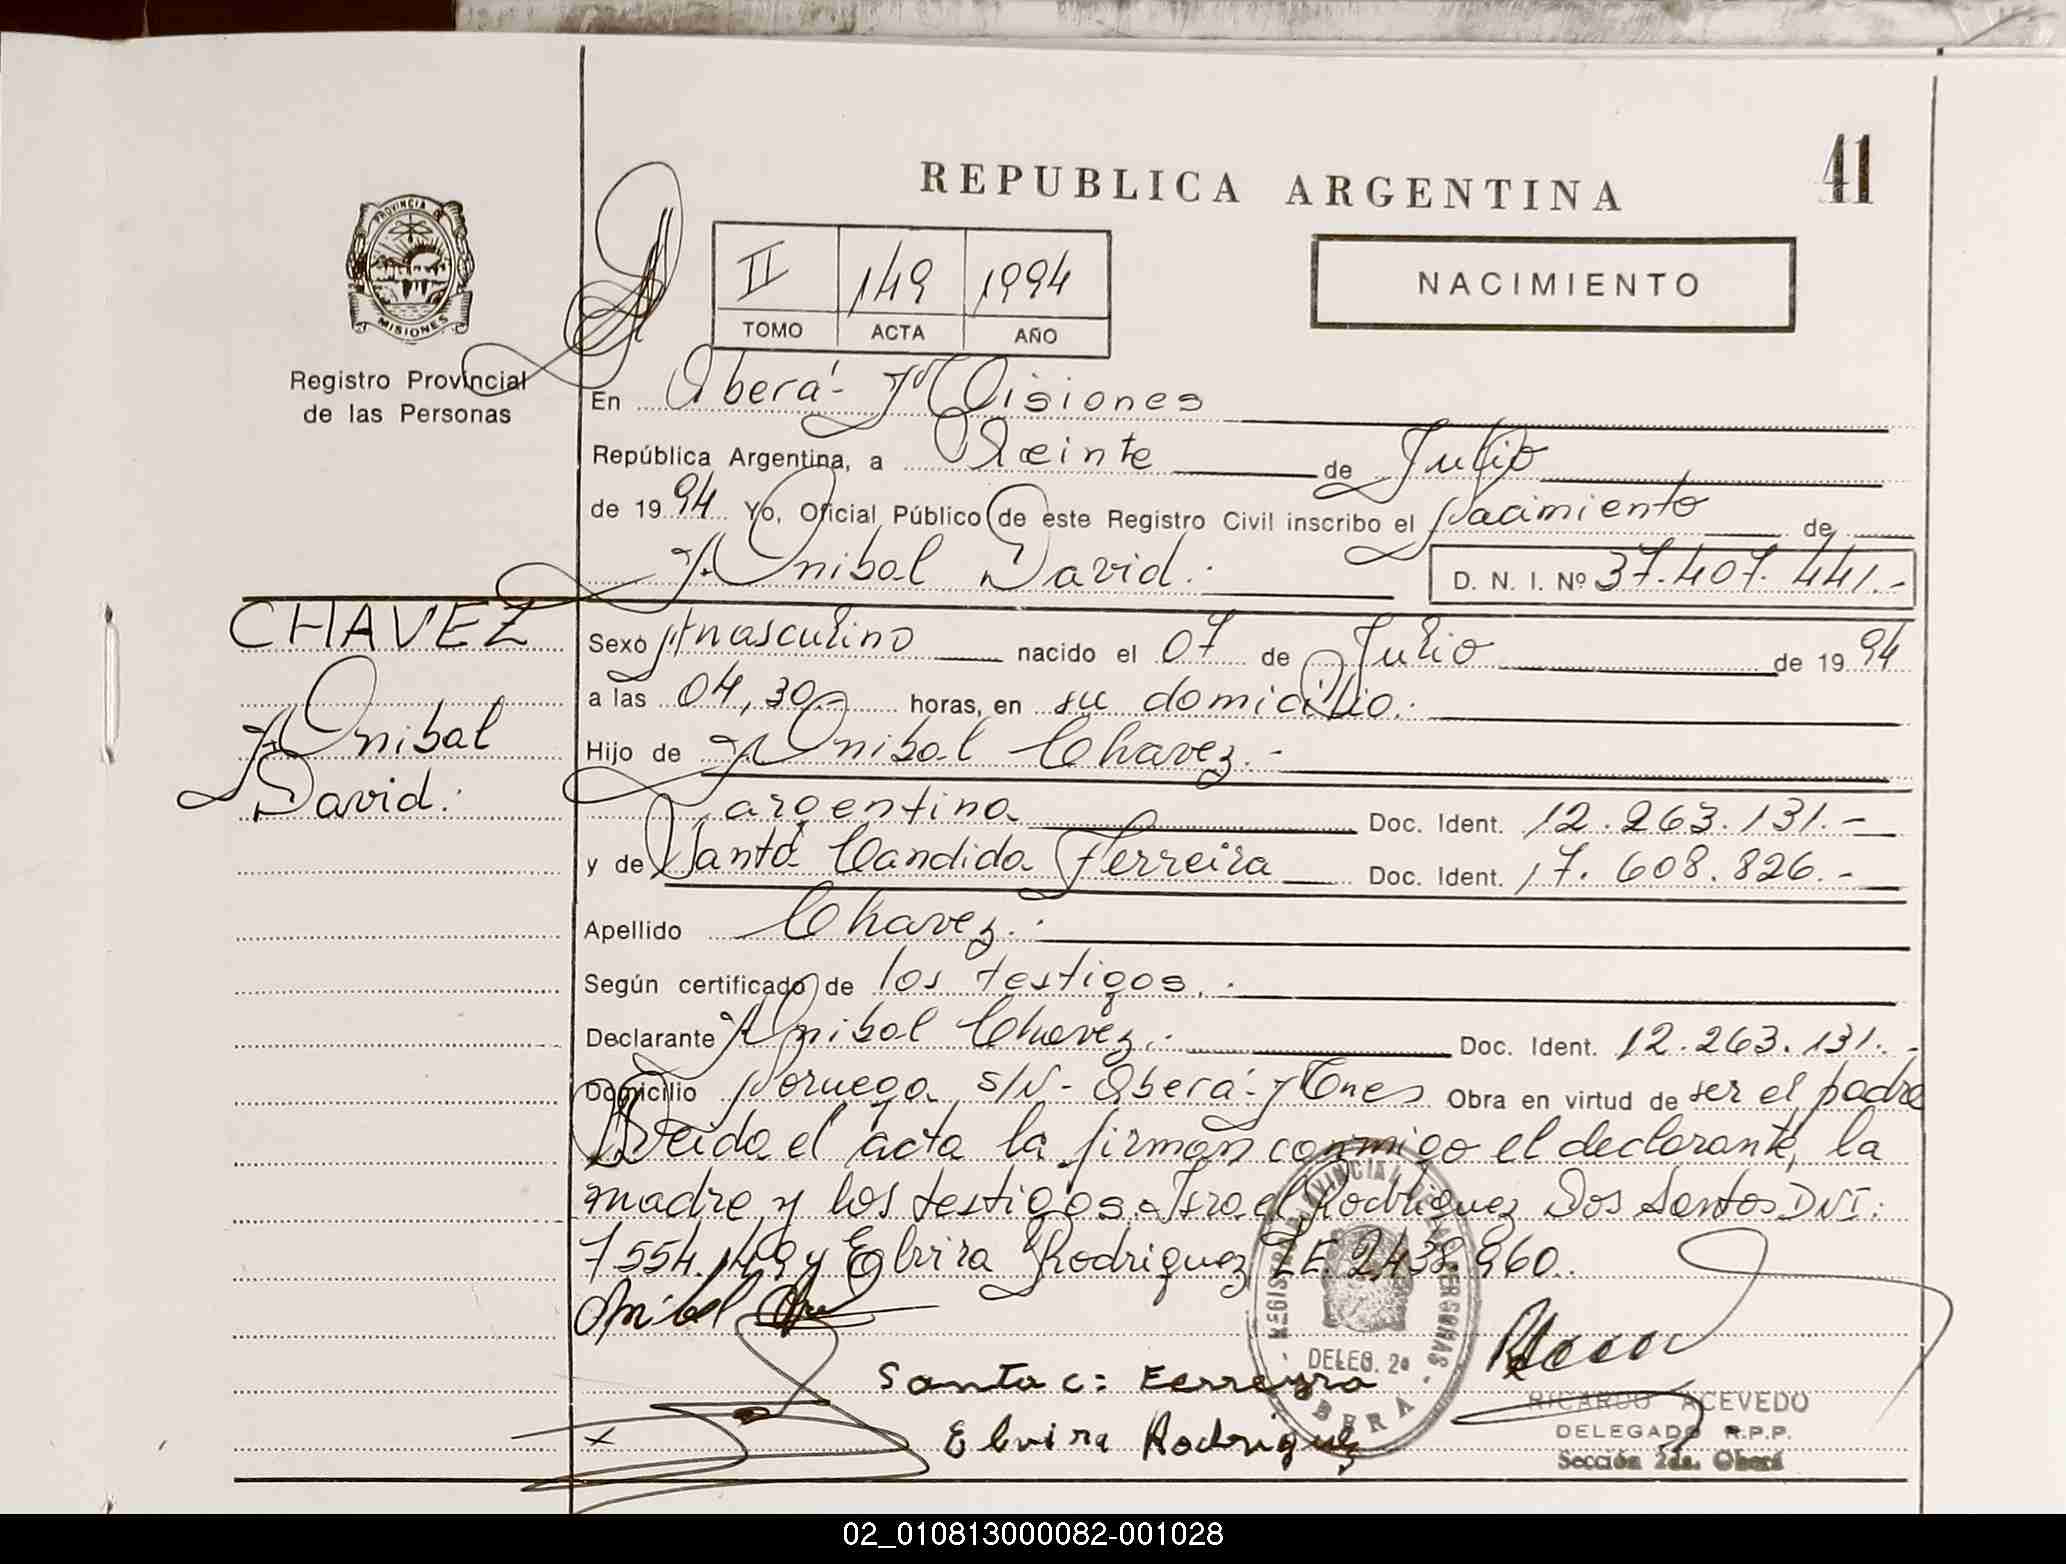 REPUBLICA ARGENTINA
41
PROVINCIA DE
MISIONES
Registro Provincial
de las Personas
II 149 1994
TOMO ACTA AÑO
NACIMIENTO
En Oberá - Misiones
República Argentina, a Veinte de Julio
de 1994 Yo, Oficial Público de este Registro Civil inscribo el Nacimiento de
Anibal David.-
D. N. I. Nº 37.407.441.-
CHAVEZ
Anibal
David.-
Sexo masculino nacido el 07 de Julio de 1994
a las 04,30 horas, en su domicilio.-
Hijo de Anibal Chavez.-
argentino Doc. Ident. 12.263.131.-
y de Santa Candida Ferreira Doc. Ident. 17.608.826.-
Apellido Chavez.-
Según certificado de los testigos.-
Declarante Anibal Chavez.- Doc. Ident. 12.263.131.-
Domicilio Noruega s/N - Oberá - Mnes Obra en virtud de ser el padre
Leida el acta la firman conmigo el declarante, la
madre y los testigos. Israel Rodriguez Dos Santos DNI:
7.554.149 y Elvira Rodriguez L.E. 2.438.960.
Anibal
Santa C: Ferreyra
Elvira Rodriguez
REGISTRO PROVINCIAL DE LAS PERSONAS
DELEG. 2a
OBERA
RICARDO ACEVEDO
DELEGADO R.P.P.
Sección 2da. Oberá
02_010813000082-001028